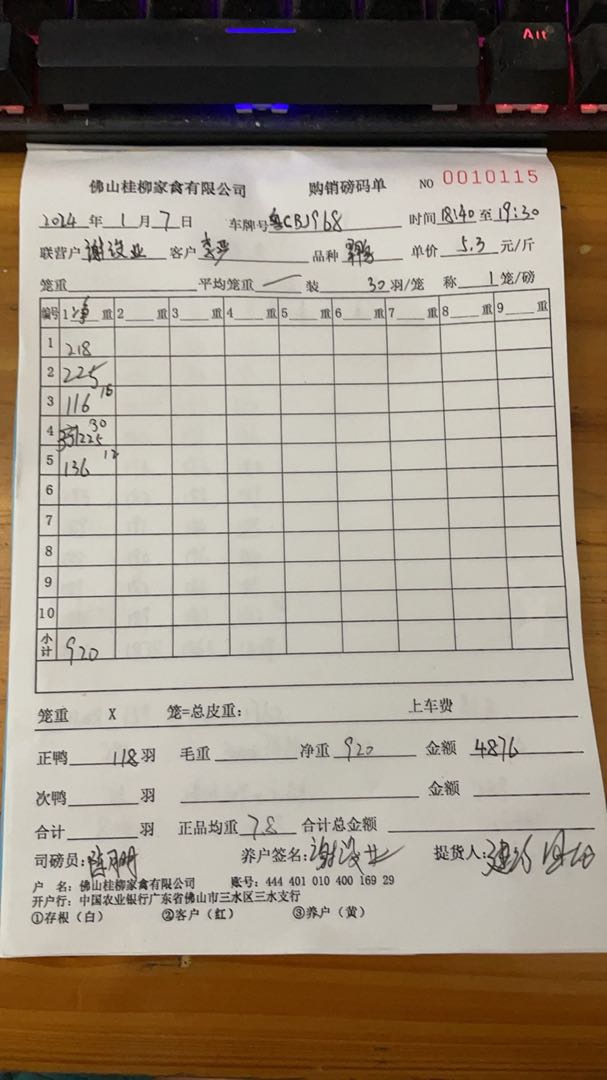 Alt
佛山桂柳家禽有限公司 购销磅码单 NO 0010115
2024 年 1 月 7 日 车牌号 粤CBJ968 时间 18:40 至 19:30
联营户 谢设业 客户 品种 单价 5.3 元/斤
笼重 平均笼重 一 装 30 羽/笼 称 1 笼/磅
编号 1 净 重 2 重 3 重 4 重 5 重 6 重 7 重 8 重 9 重
1 218
2 225
3 116 16
4 225 30
5 136 12
6
7
8
9
10
小计 920
笼重 X 笼=总皮重: 上车费
正鸭 118 羽 毛重 净重 920 金额 4876
次鸭 羽 金额
合计 羽 正品均重 7.8 合计总金额
司磅员: 养户签名: 谢设业 提货人:
户 名: 佛山桂柳家禽有限公司 账号: 444 401 010 400 169 29
开户行: 中国农业银行广东省佛山市三水区三水支行
①存根（白） ②客户（红） ③养户（黄）